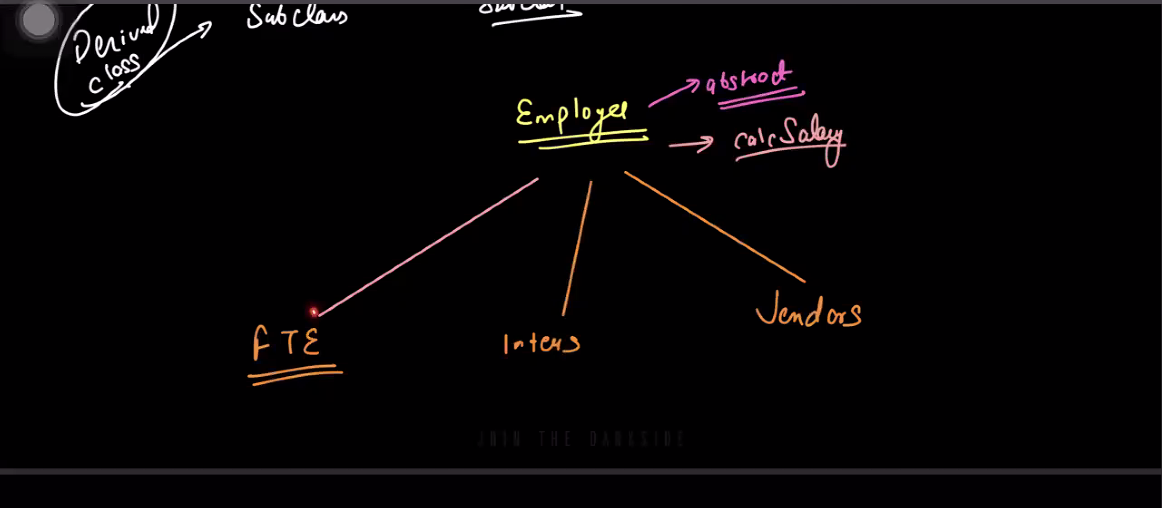 Derived
class
Subclass
Employee
abstract
calcSalary
FTE
Inters
Vendors
JOIN THE DARKSIDE